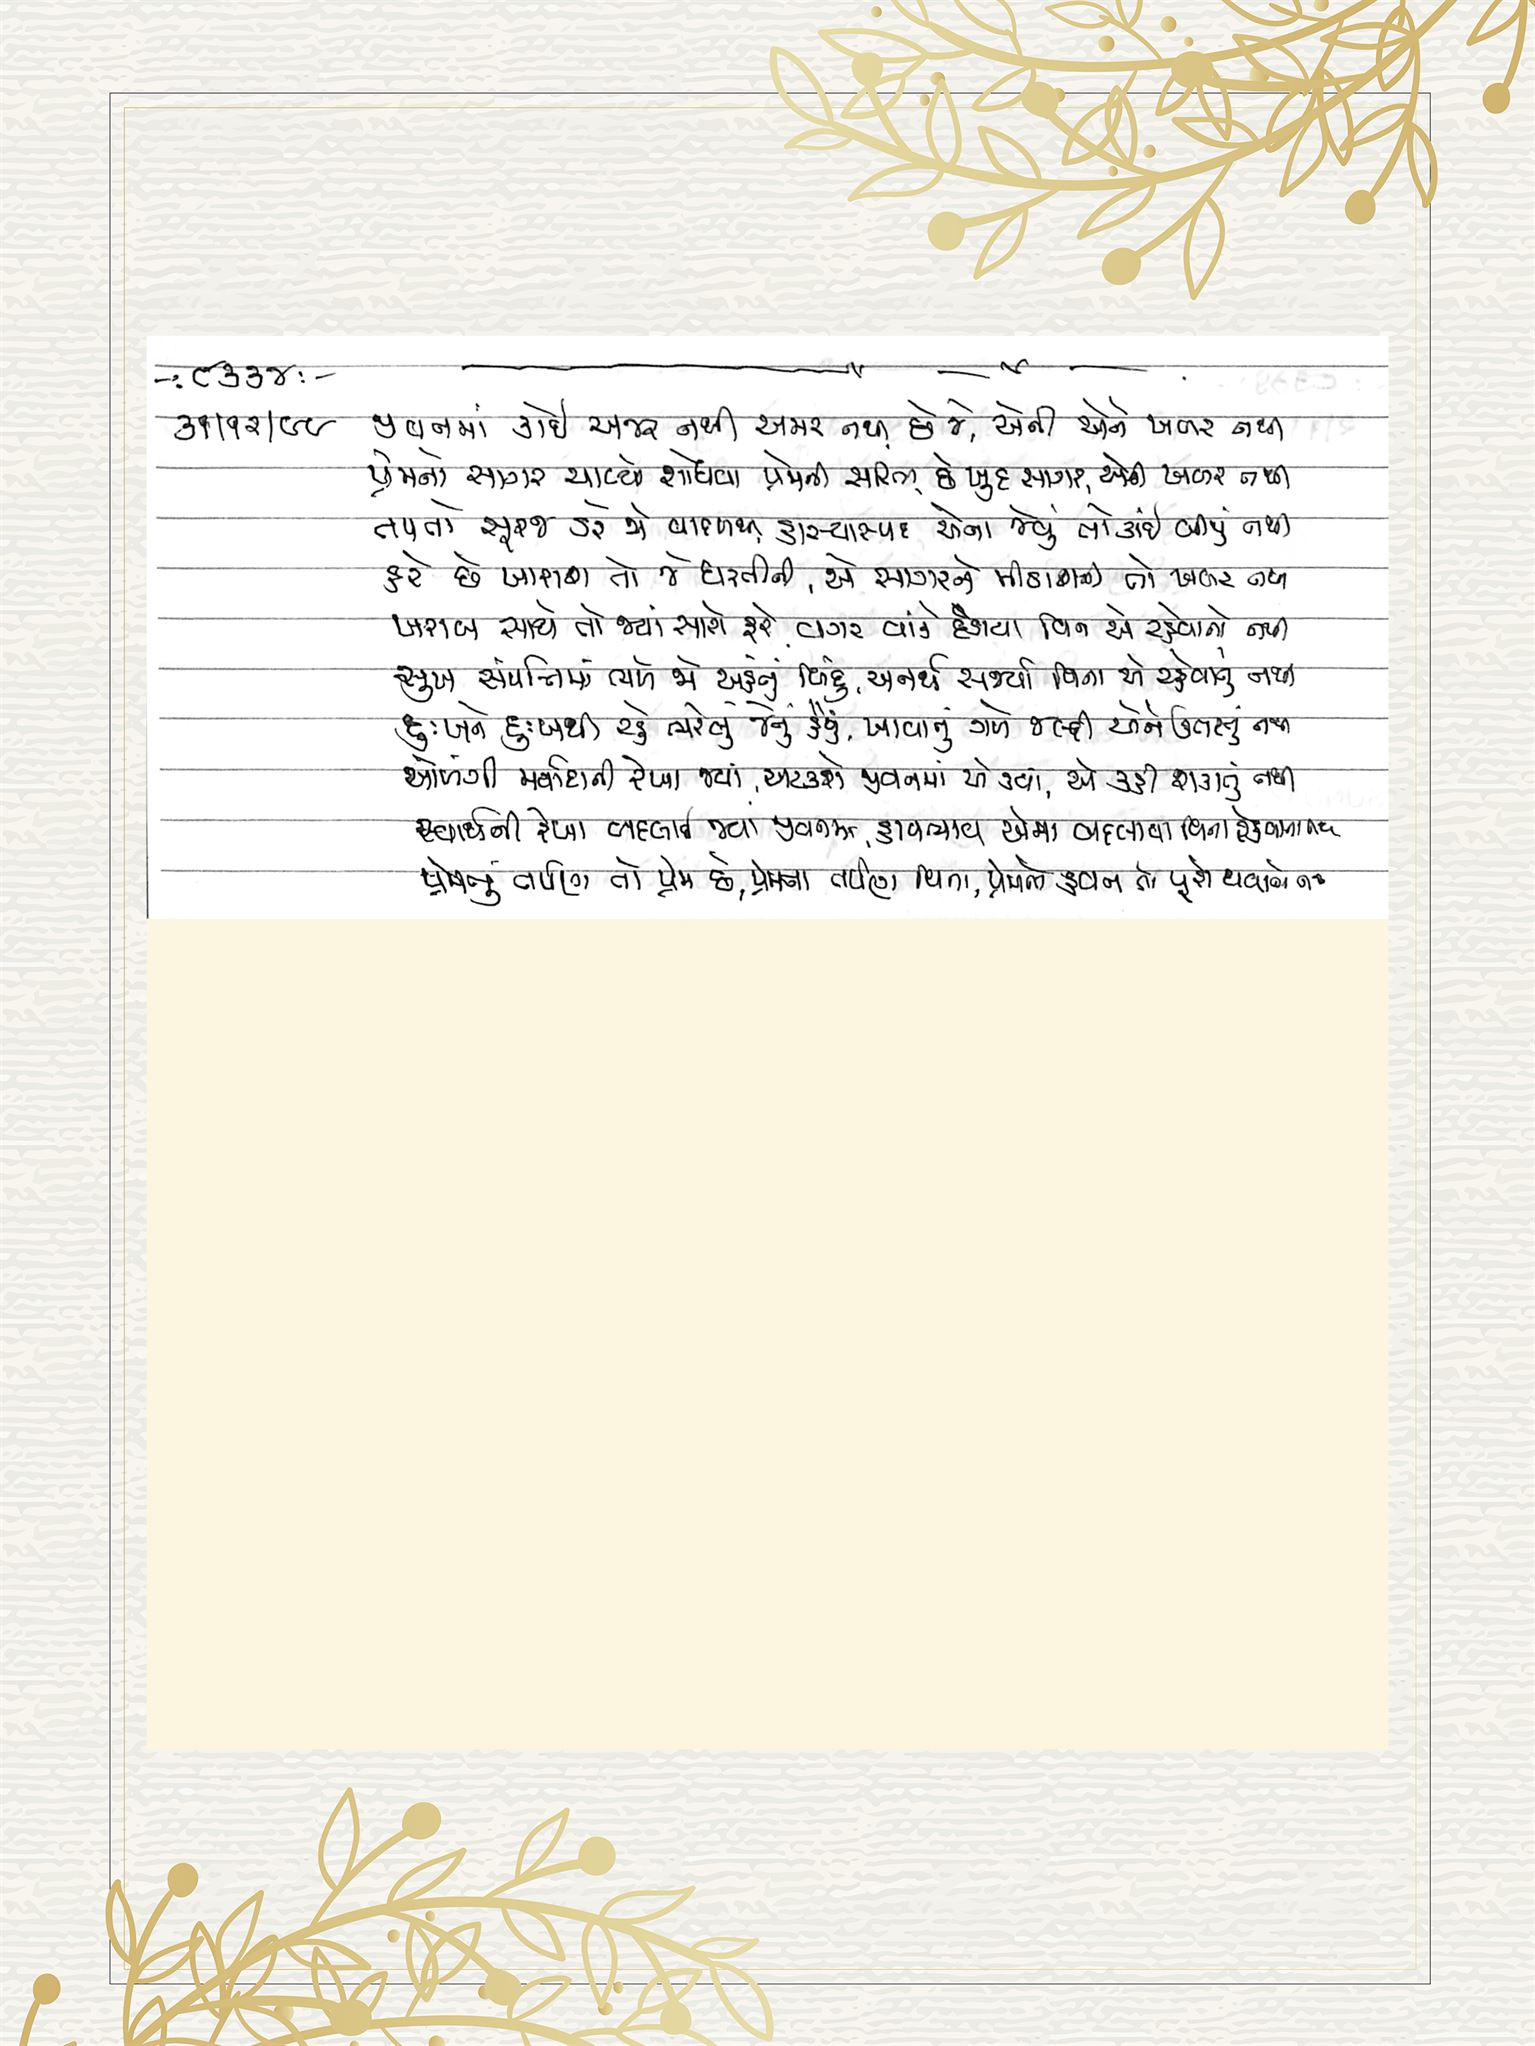 -: ૯૩૩૪ :-
૩૧/૧૨/૯૯ જીવનમાં કોઈ અજર નથી અમર નથી, છે જે, એની એને ખબર નથી
પ્રેમનો સાગર ચાલ્યો શોધવા પ્રેમની સરિતા, છે ખુદ સાગર, એની ખબર નથી
તપતો સૂરજ ડરે જો વાદળથી, હાસ્યાસ્પદ એના જેવું તો કાંઈ બીજું નથી
કરે છે ખારાશ તો જે ધરતીની, એ સાગરને મીઠાશની તો ખબર નથી
ખરાબ સાથે તો જ્યાં સારો ફરે, વગર વાંકે દંડાયા વિના એ રહેવાનો નથી
સુખ સંપત્તિમાં ભળે જો અહંનું બિંદુ, અનર્થ સર્જ્યા વિના એ રહેવાનું નથી
દુઃખને દુઃખથી રહે ભરેલું જેનું હૈયું, ખાવાનું ગળે જલ્દી એને ઉતરતું નથી
ઓળંગી મર્યાદાની રેખા જ્યાં, અટકશે જીવનમાં એ ક્યાં, એ કહી શકાતું નથી
સ્વાર્થની રેખા બદલાઈ જ્યાં જીવનમાં, હાવભાવ એમાં બદલાયા વિના રહેવાના નથી
પ્રેમનું તર્પણ તો પ્રેમ છે, પ્રેમના તર્પણ વિના, પ્રેમનો હવન તો પૂરો થવાનો નથી